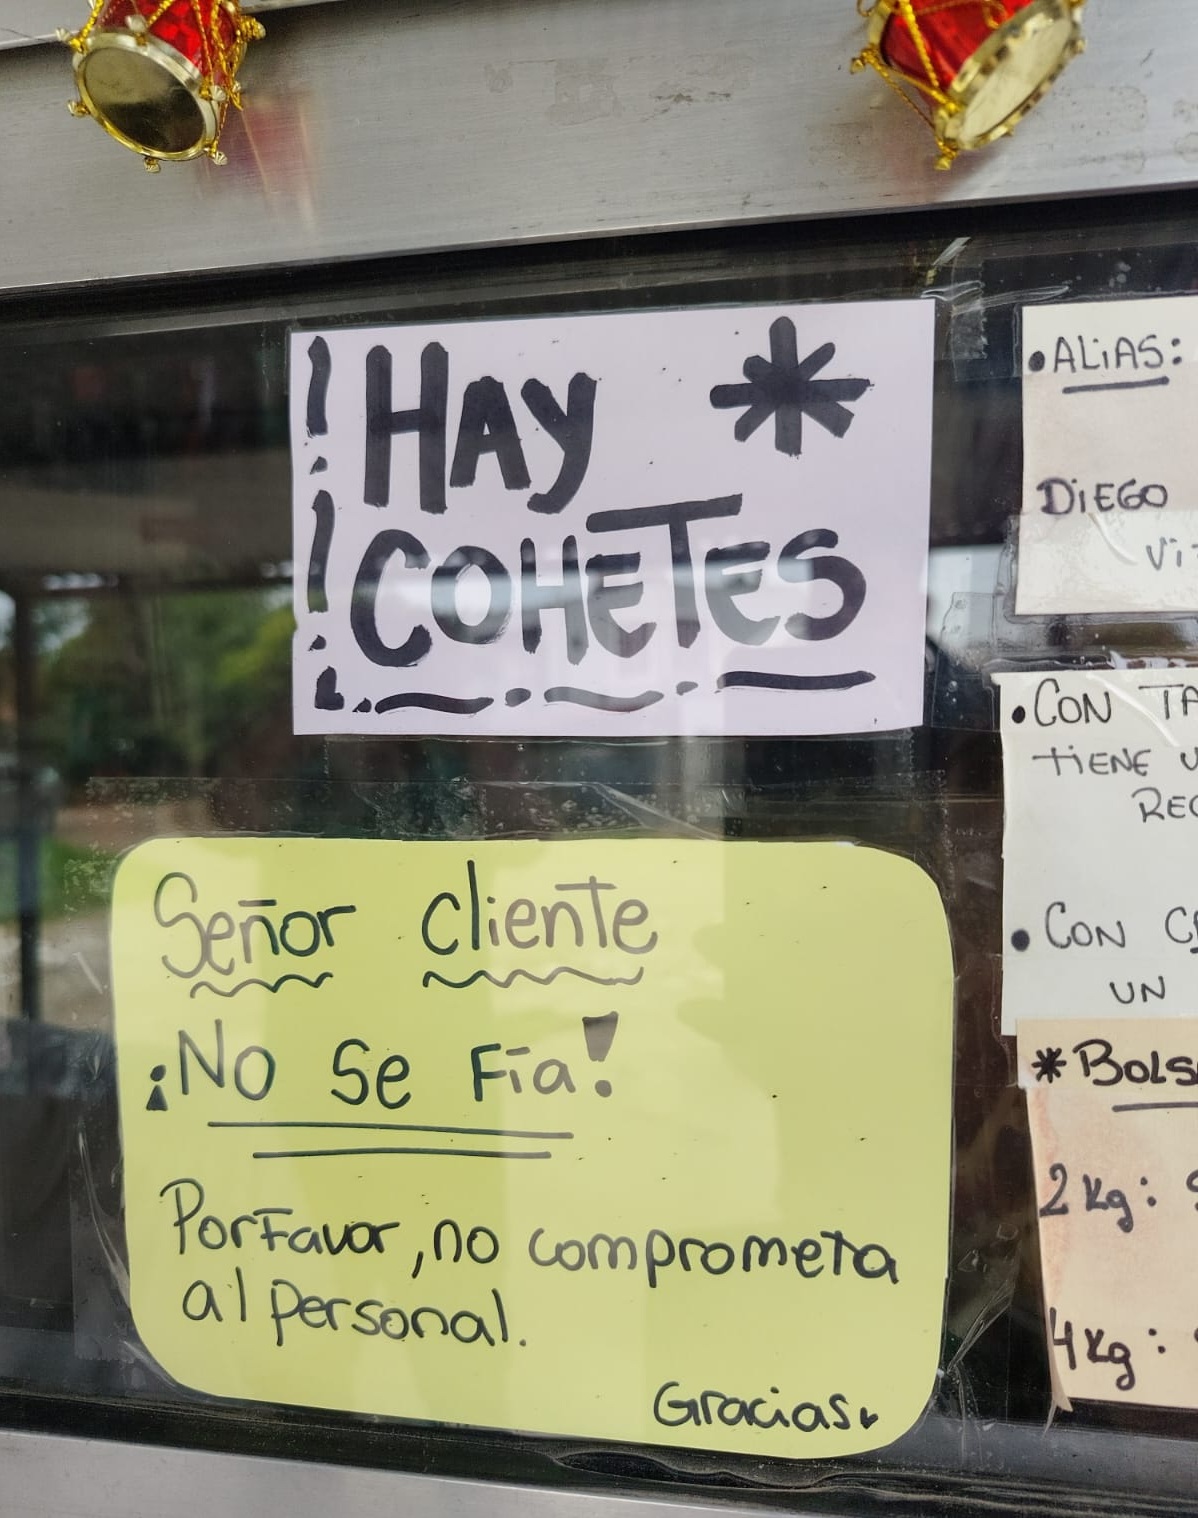 HAY *
COHETES
Señor cliente
¡No Se Fía!
PorFavor, no comprometa
al personal.
Gracias
• ALiAS:
DiEGO
• CON
TIENE
• CON
UN
*
2 Kg:
4 Kg: